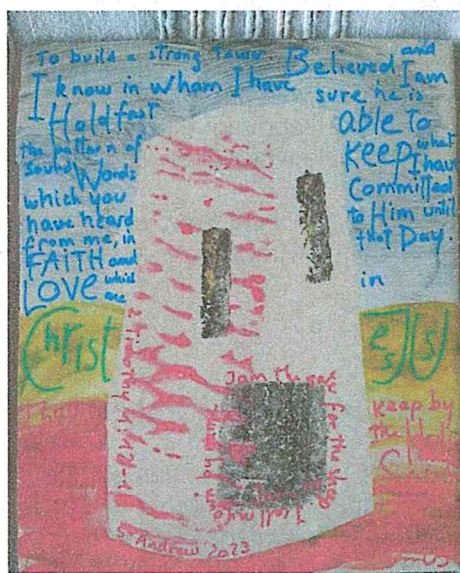 To build a strong Tower
I know in whom I have Believed and I am
sure he is
able to
Keep what
I have
Committed
to Him until
that Day.
Hold fast
the pattern of
Sound Words
which you
have heard
from me, in
FAITH and
LOVE which
are
in
Christ
Jes(u)s
2 Timothy
I am the
for the sheep
I tell
keep by
the Holy
St Andrew 2023